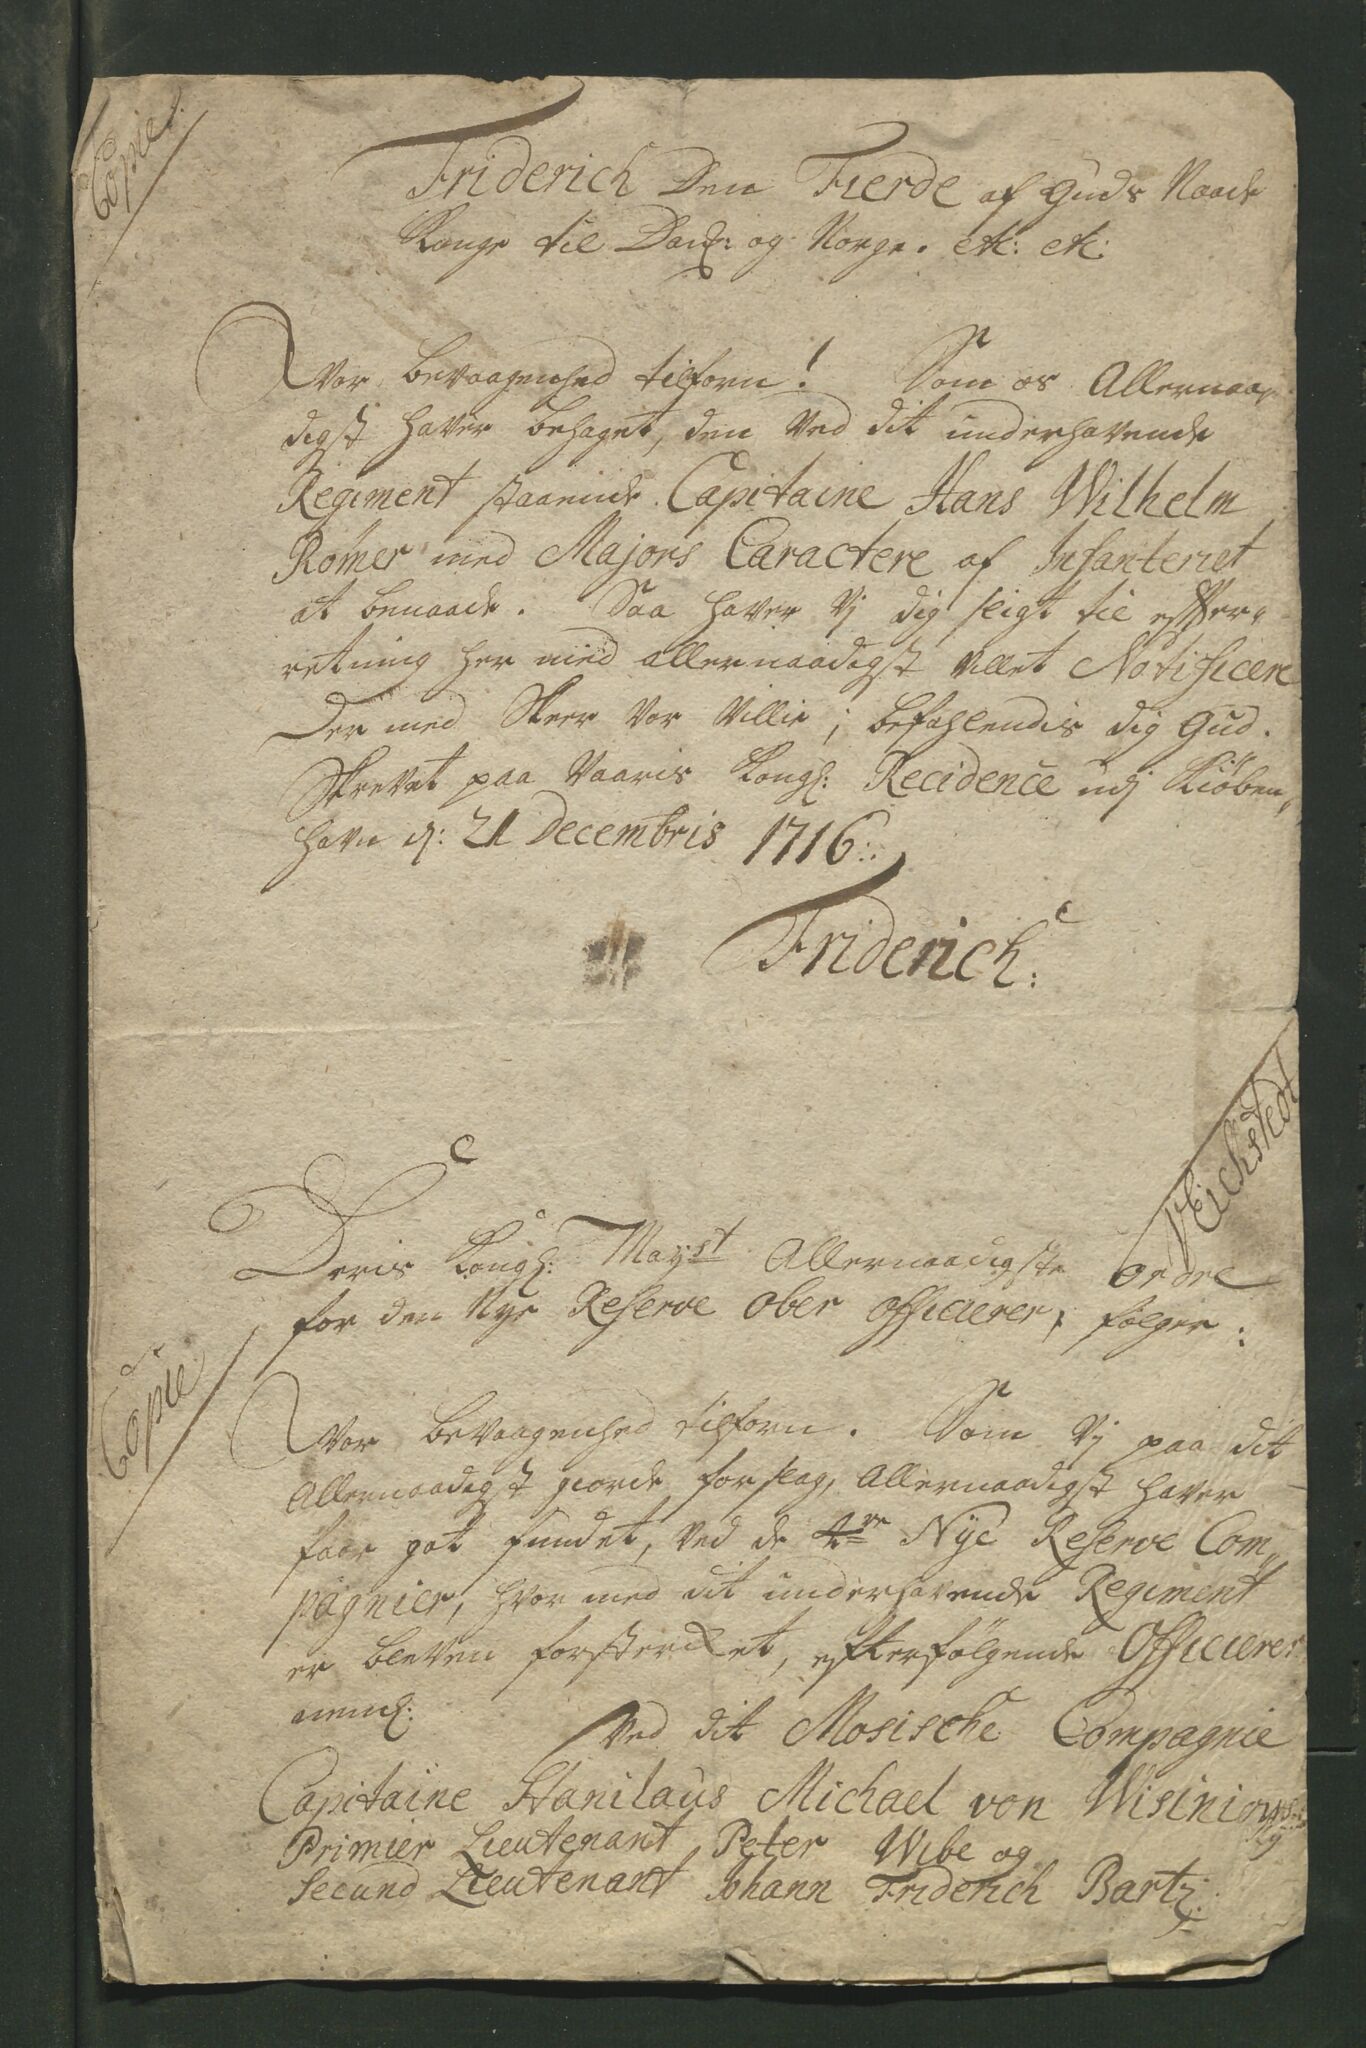 Copie.
Friderich Den Fierde af Guds Naade
Konge til Dan: og Norge. etc: etc:
Vor bevaagenhed tilforn! Som os Allernaa-
digst haver behaget, den ved dit underhavende
Regiment staaende Capitaine Hans Wilhelm
Römer med Majors Caractere af Infanteriet
at benaade. Saa haver Vj dig sligt til effter-
retning her med allernaadigst villet Notificere
Der med Skeer Vor Villie; befahlendis dig Gud.
Skrevet paa Vaaris Kongl: Recidence udj Kiöben„
havn d: 21 Decembris 1716.
Friderich.
V Eichstedt
Deris Kongl: Mayst Allernaadigste ordre
for den Nye Reserve ober officierer, følger:
Copie
Vor bevaagenhed tilforn. Som Vj paa dit
Allernaadigst giorde forslag, Allernaadigst haver
faar got fundet, ved de 4re Nye Reserve Com„
pagnier, hvor med dit underhavende Regiment
er bleven forsterket, efterfølgende Officierer
neml:
Ved dit Mosische Compagnie
Capitaine Stanilaus Michael von Wisiniows-
ky
Primier Lieutenant Peter Wibe og
Secund Lieutenant Johann Friderich Bartz: